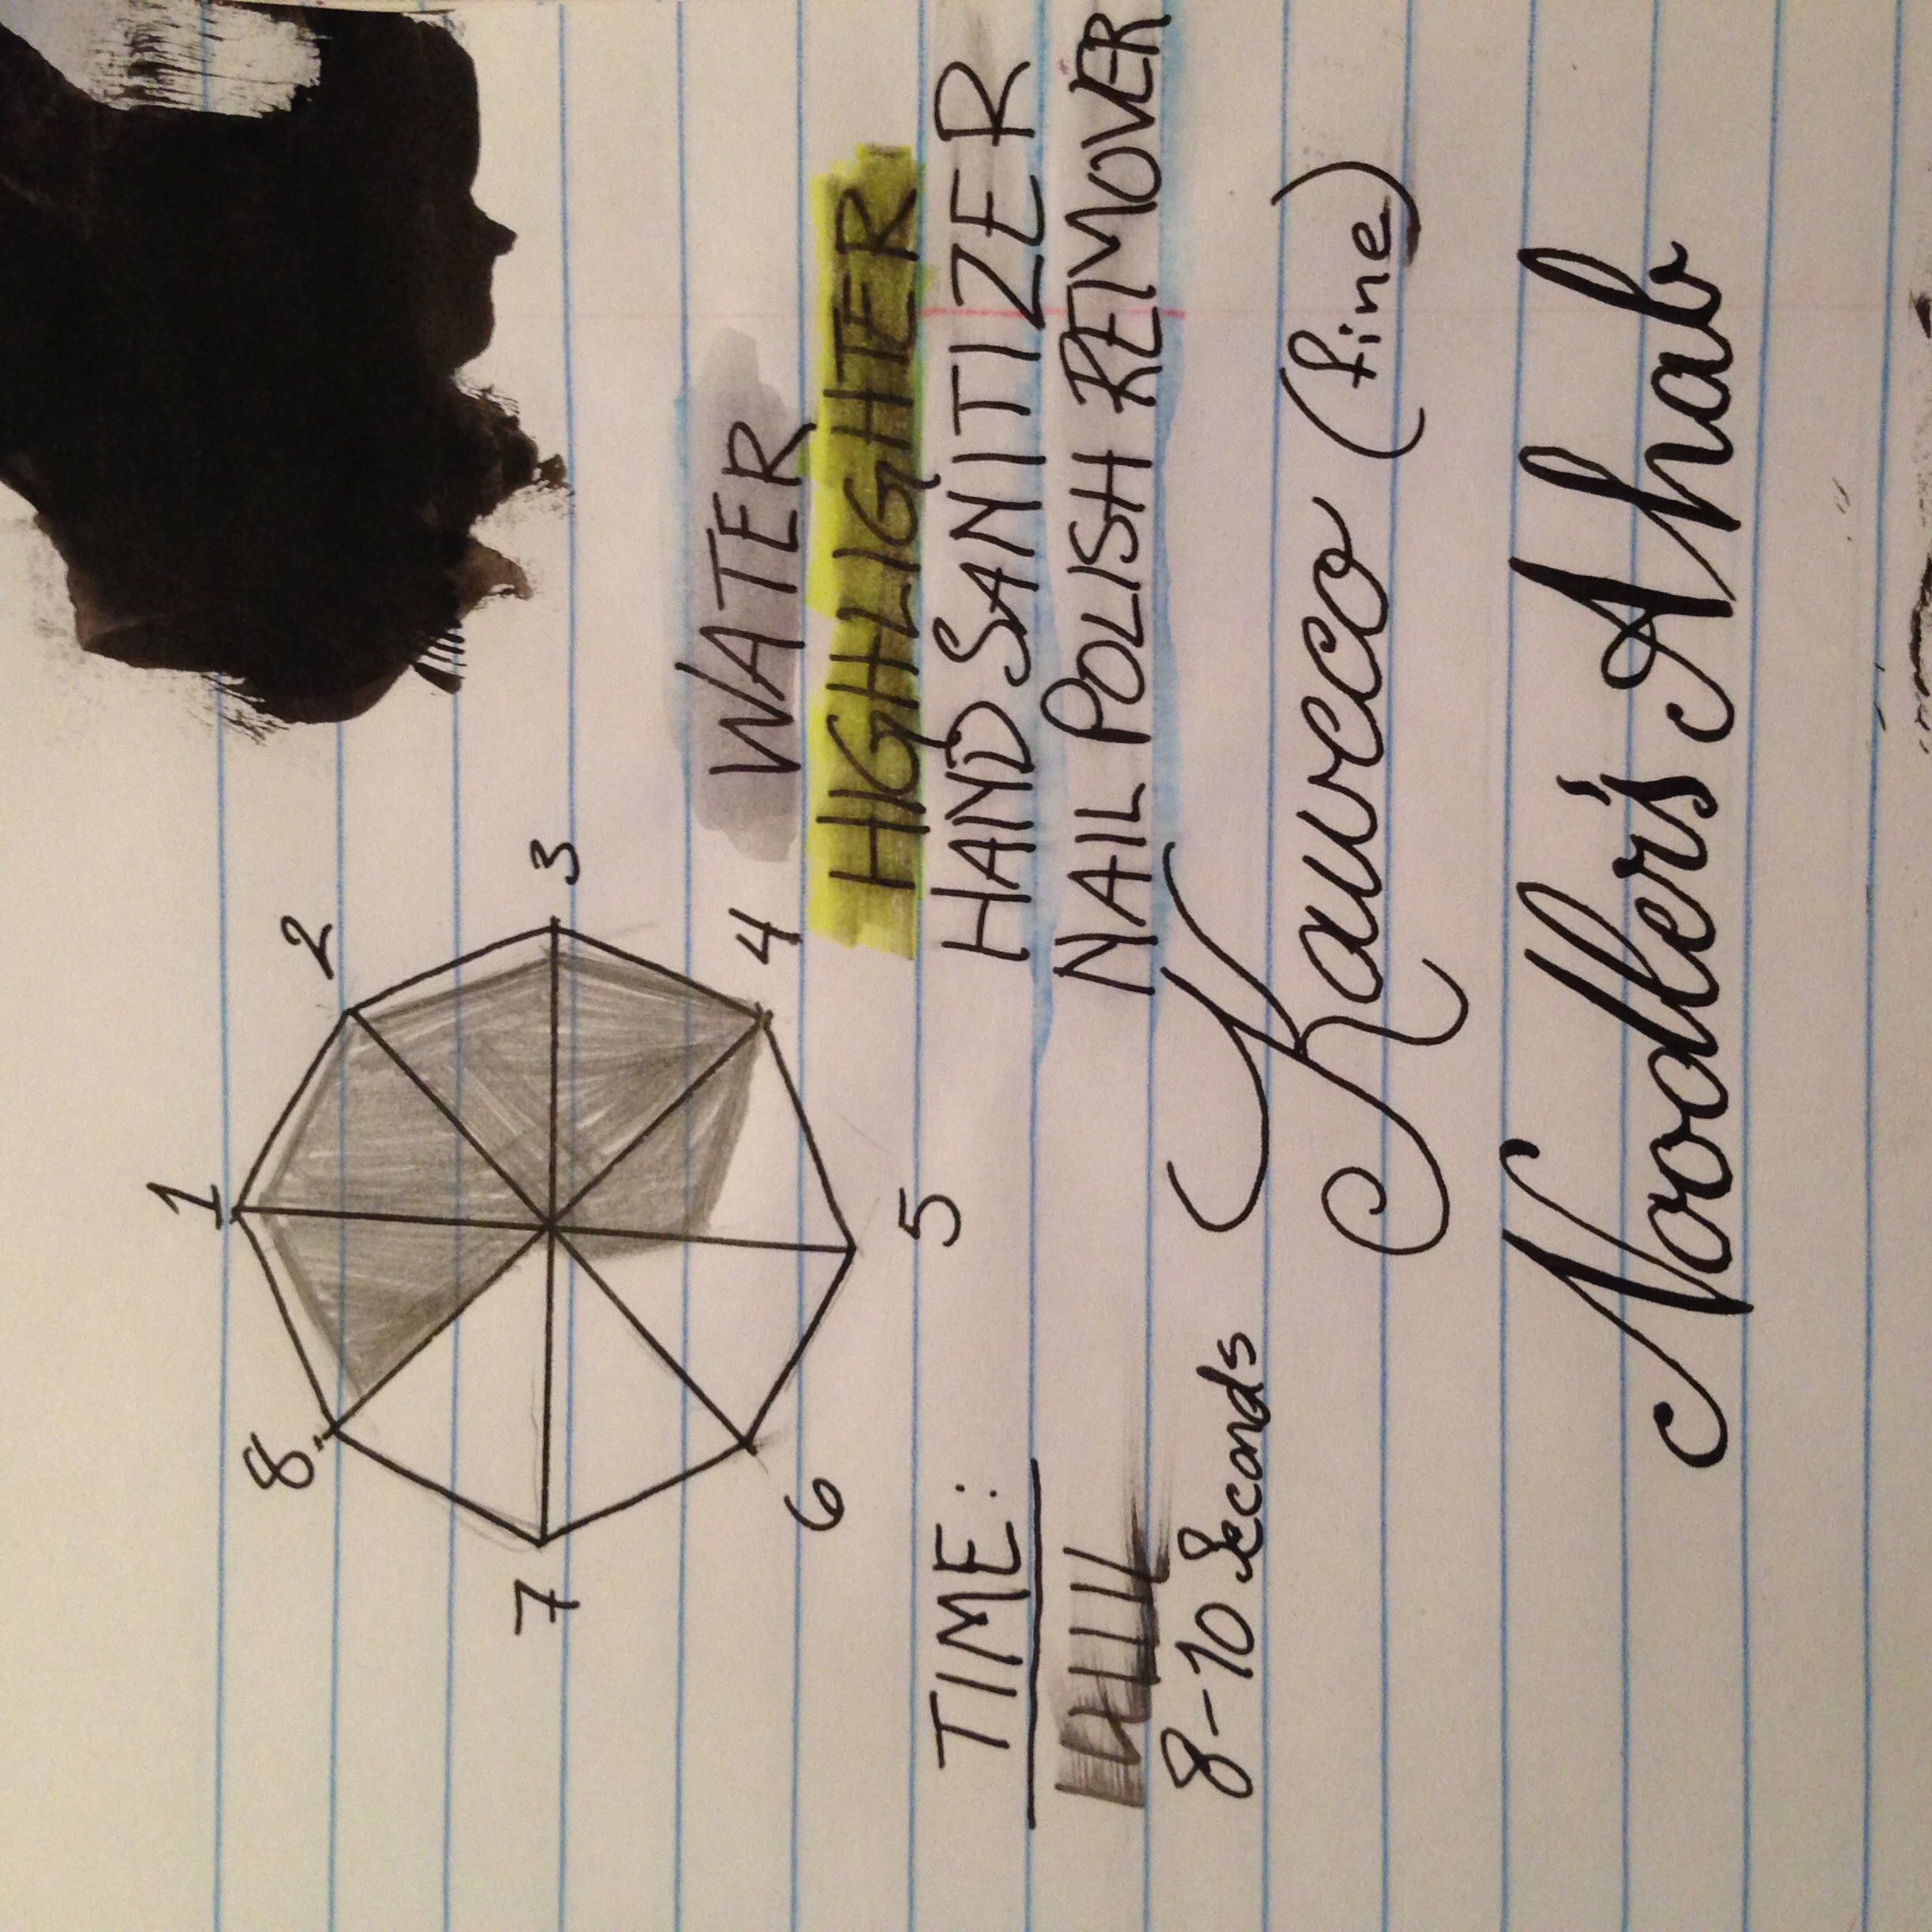 1
2
3
4
5
6
7
8
WATER
HIGHLIGHTER
HAND SANITIZER
NAIL POLISH REMOVER
TIME:
8-10 Seconds
Kaweco (fine)
Noodler's Ahab